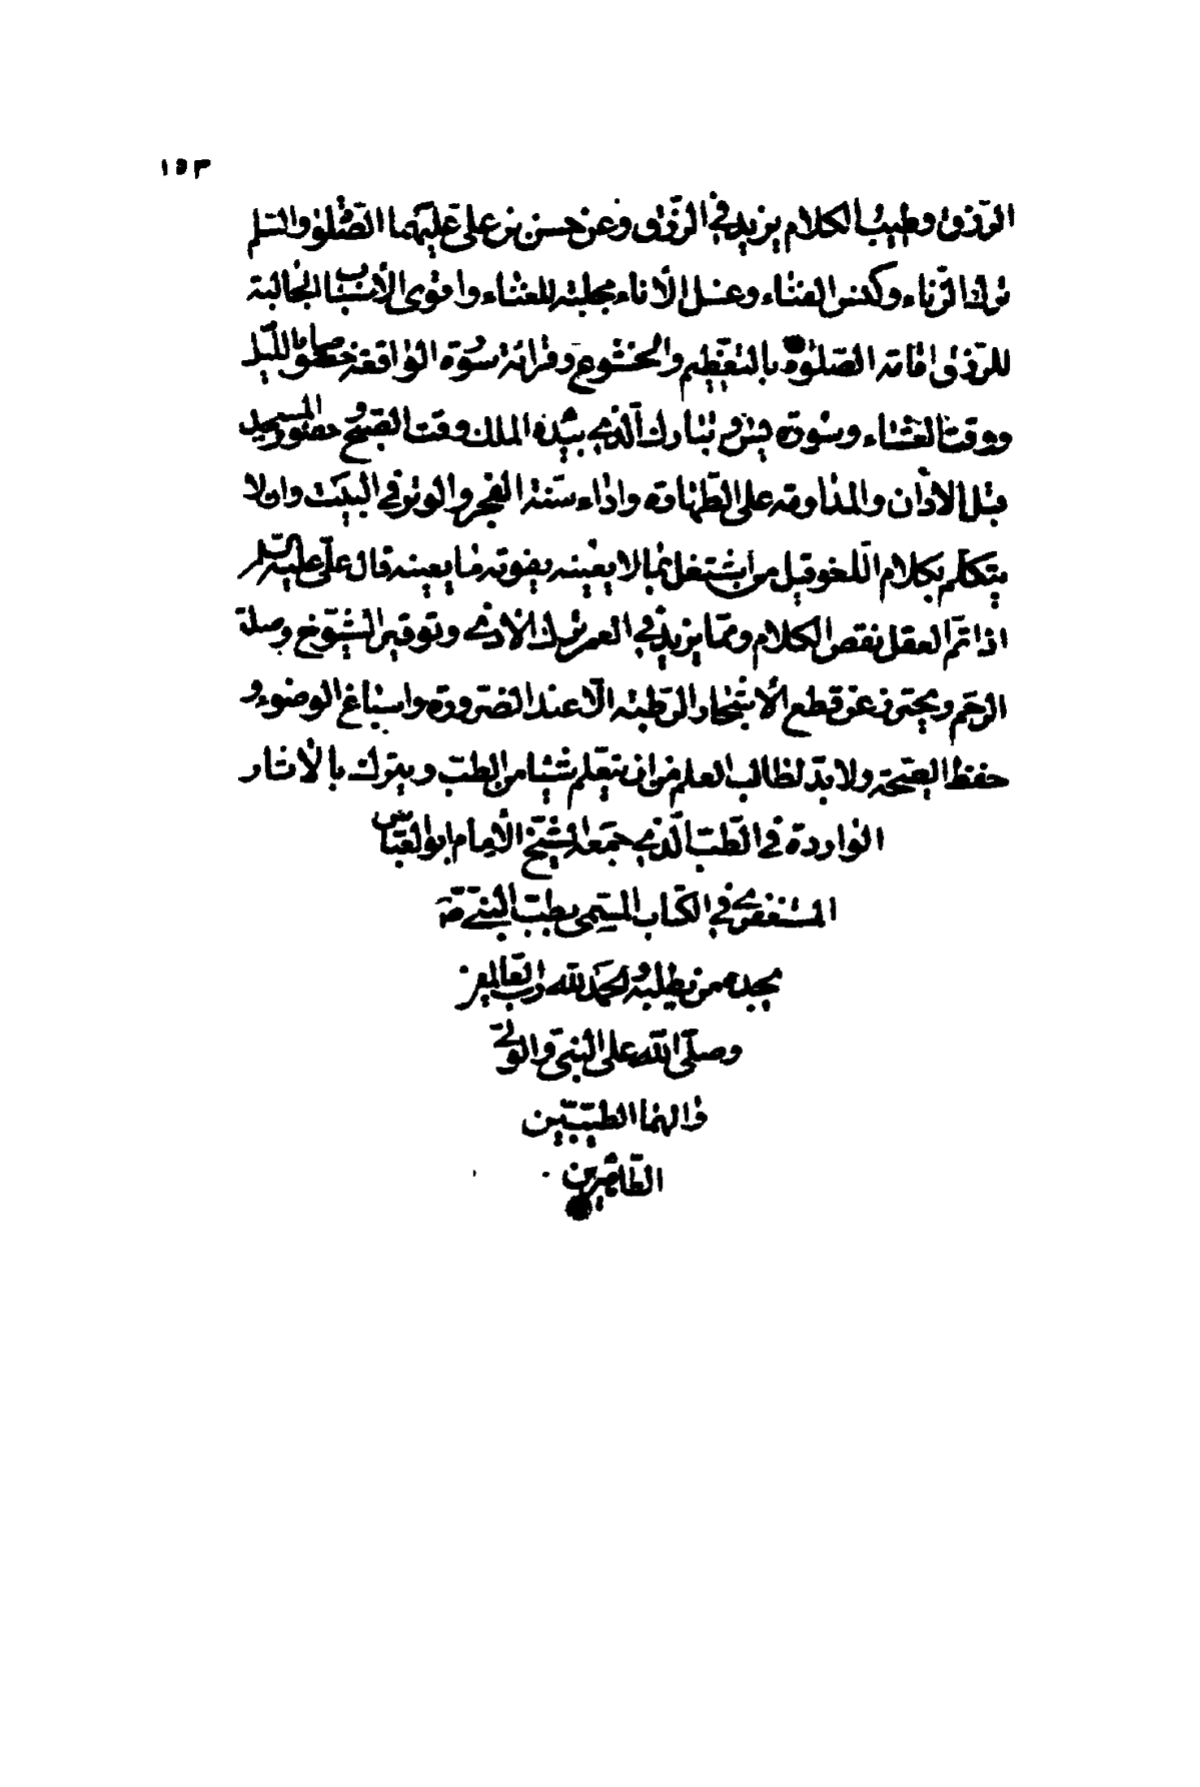 ١٥٣
الرزق وطيب الكلام يزيد في الرزق وعن حسن بن على عليهما الصلوة والسلم
ترك الزناء وكنس الفناء وغسل الاناء مجلبة للغناء واقوى الأسباب الجالبة
للرزق اقامة الصلوة بالتعظيم والخشوع وقرائة سورة الواقعة خصوصا بالليل
ووقت العشاء وسورة يس وتبارك الذي بيده الملك وقت الصبح وحضور المسجد
قبل الاذان والمداومة على الطهارة واداء سنة الفجر والوتر في البيت وان لا
يتكلم بكلام اللغو قيل من اشتغل بما لا يعينه يفوته ما يعينه قال على عليه السلم
اذا تم العقل نقص الكلام ومما يزيد في العمر ترك الاذى وتوقير الشيوخ وصلة
الرحم ويحترز عن قطع الأشجار الرطبة الا عند الضرورة واسباغ الوضوء و
حفظ الصحة ولا بد لطالب العلم من ان يتعلم شيئا من الطب ويتبرك بالأثار
الواردة في الطب الذي جمعه الشيخ الأمام ابو العباس
المستغفري في الكتاب المسمى بطب النبي ص
يجده من يطلبه والحمد لله رب العالمين
وصلى الله على النبي والولي
والهما الطيبين
الطاهرين